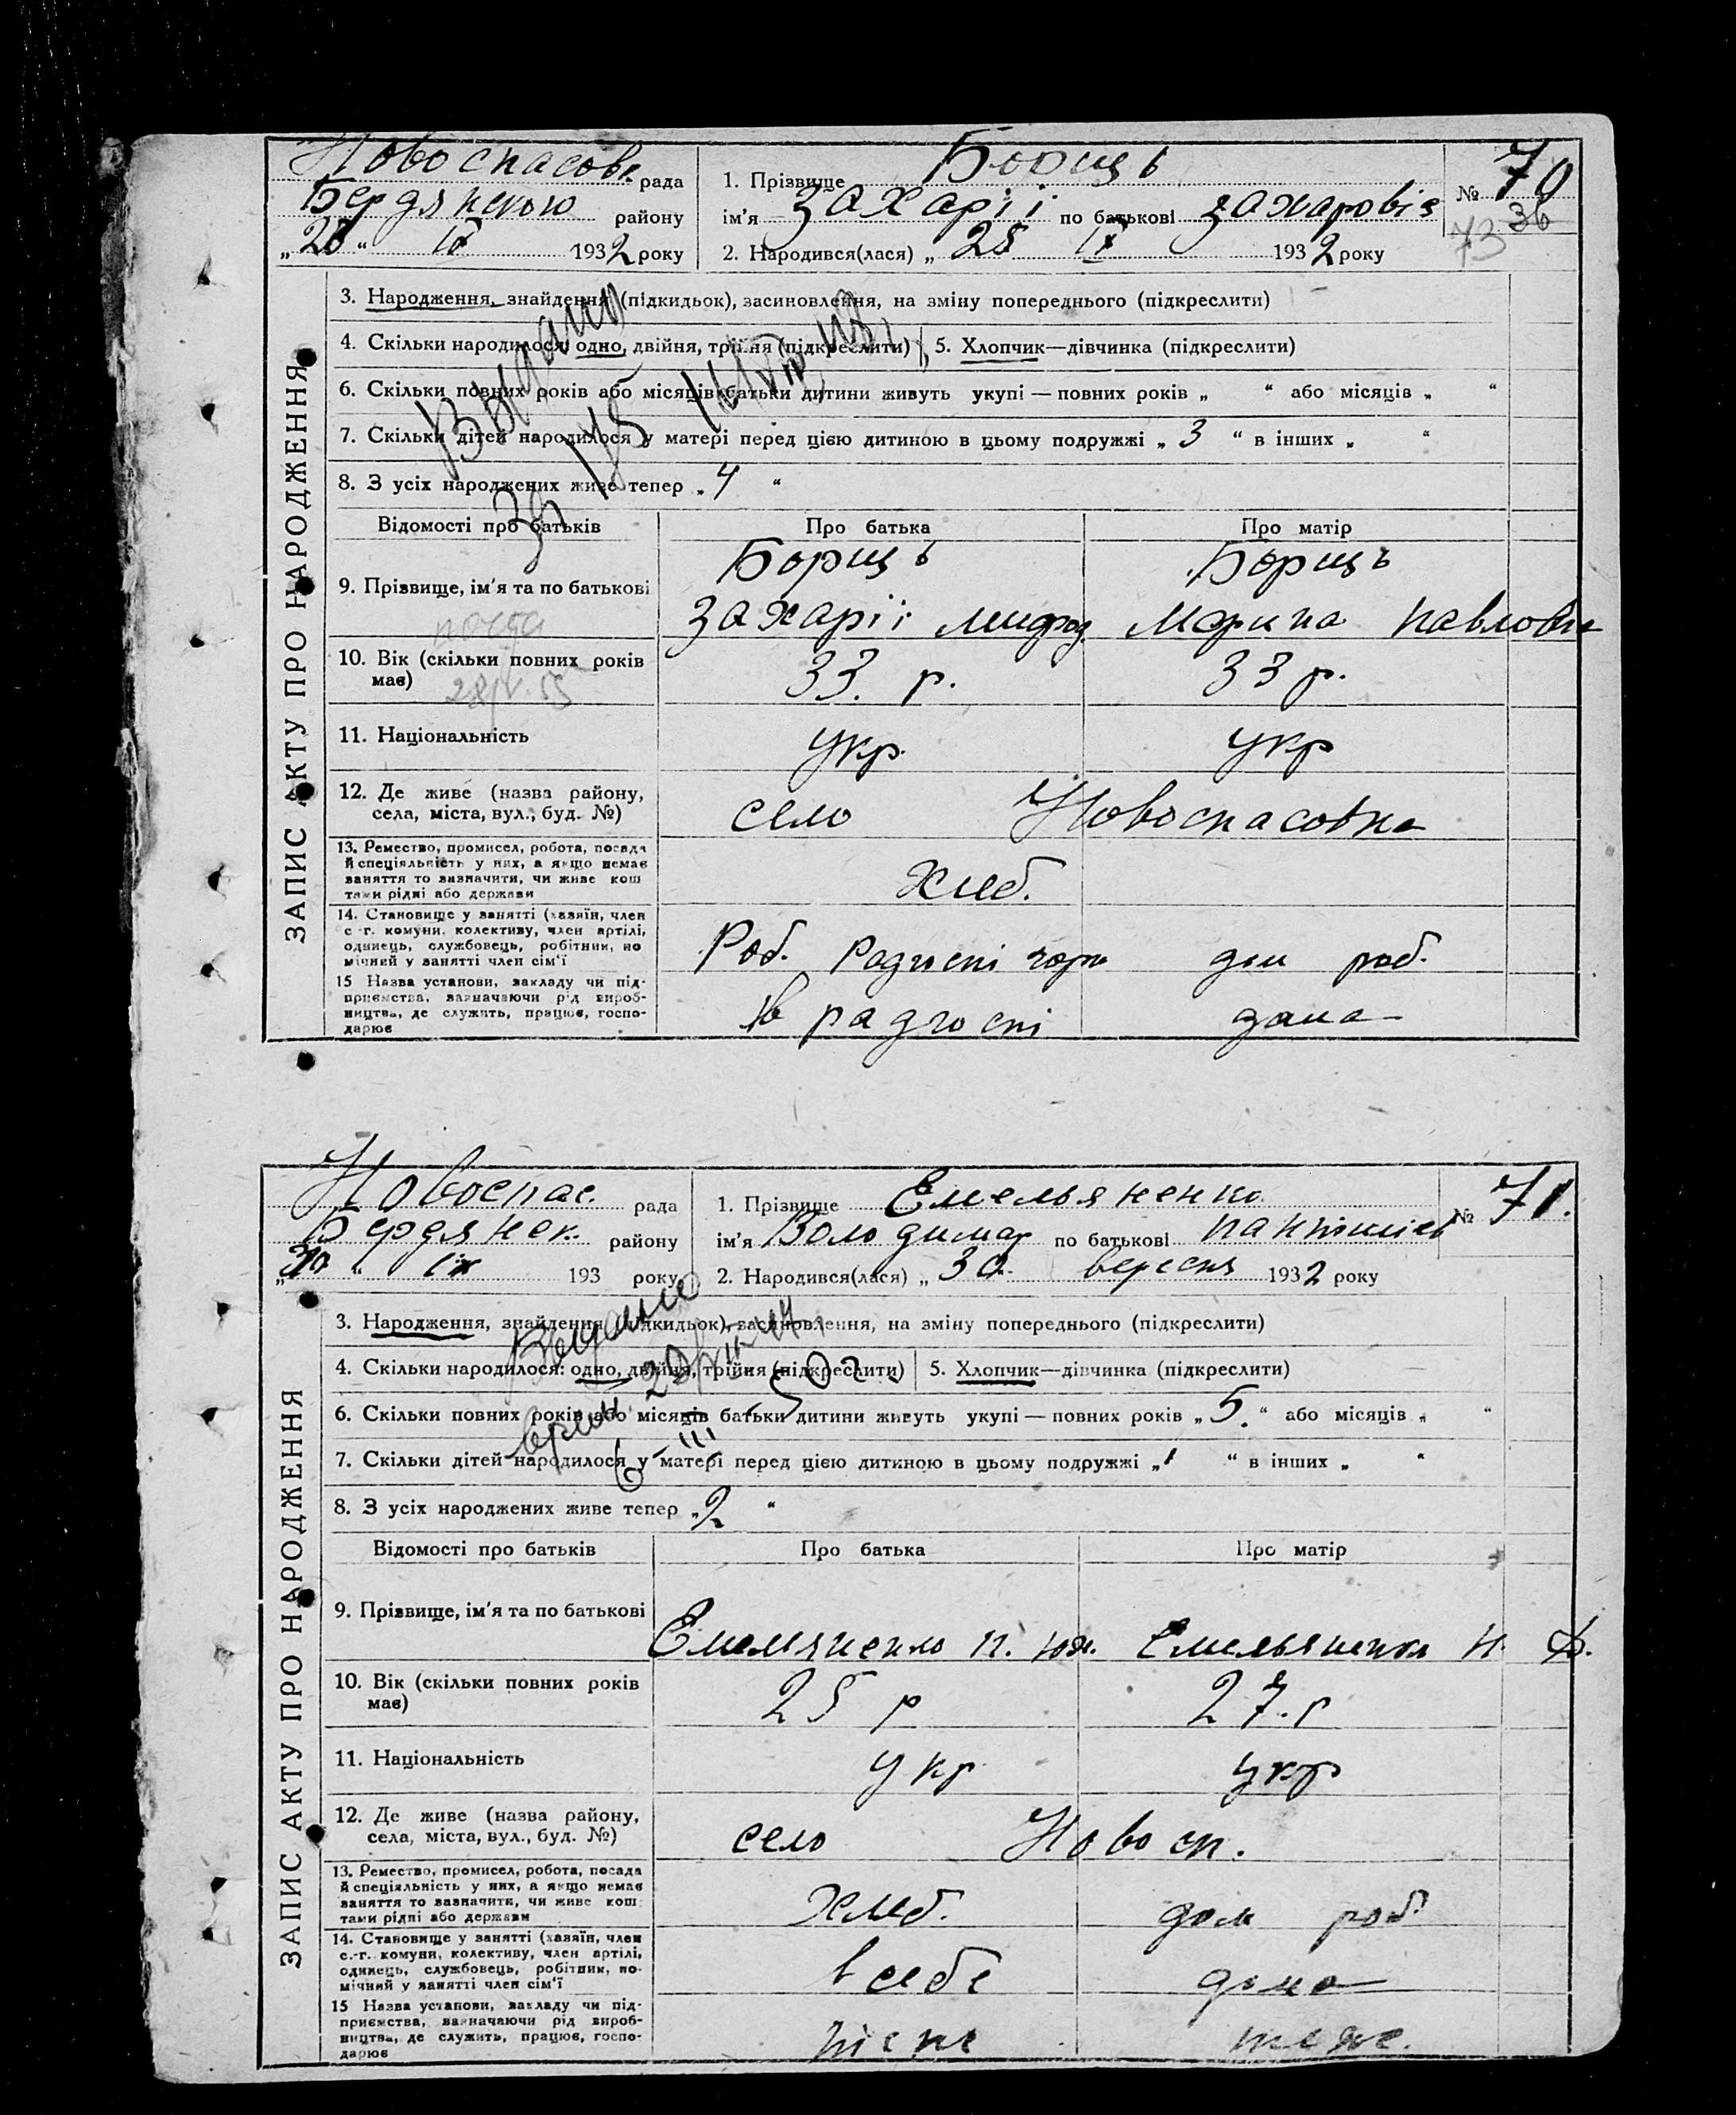 Новоспасов. рада
Бердянсько району
„28“ IX 1932 року
1. Прізвище Борщь
ім'я Захарії по батькові Захаровіч
2. Народився(лася) „ 28 IX 1932 року
№ 70
36
73
ЗАПИС АКТУ ПРО НАРОДЖЕННЯ
3. Народження, знайдення (підкидьок), засиновлення, на зміну попереднього (підкреслити)
4. Скільки народилося: одно, двійня, трійня (підкреслити) 5. Хлопчик—дівчинка (підкреслити)
6. Скільки повних років або місяців батьки дитини живуть укупі — повних років „ “ або місяців „ “
7. Скільки дітей народилося у матері перед цією дитиною в цьому подружжі „ 3 “ в інших „ “
8. З усіх народжених живе тепер „ 4 “
Відомості про батьків Про батька Про матір
9. Прізвище, ім'я та по батькові
Борщь Борщь
Захарії Марина Павловна
10. Вік (скільки повних років має) 33. р. 33 р.
11. Національність укр. укр
12. Де живе (назва району, села, міста, вул., буд. №) село Новоспасовка
13. Ремество, промисел, робота, посада й спеціяльність у них, а якщо немає заняття то зазначити, чи живе коштами рідні або держави
Хліб.
14. Становище у занятті (хазяїн, член с.-г. комуни, колективу, член артілі, одинець, службовець, робітник, помічний у занятті член сім'ї
Роб. Радгоспі дом роб.
15 Назва установи, закладу чи підприємства, зазначаючи рід виробництва, де служить, працює, господарює
в радгоспі дома
Новоспас. рада
Бердянск. району
„30“ IX 193 року
1. Прізвище Емельяненко
ім'я Володимар по батькові
2. Народився(лася) „ 30 вересня 1932 року
№ 71.
ЗАПИС АКТУ ПРО НАРОДЖЕННЯ
3. Народження, знайдення (підкидьок), засиновлення, на зміну попереднього (підкреслити)
4. Скільки народилося: одно, двійня, трійня (підкреслити) 5. Хлопчик—дівчинка (підкреслити)
6. Скільки повних років або місяців батьки дитини живуть укупі — повних років „ 5. “ або місяців „ “
7. Скільки дітей народилося у матері перед цією дитиною в цьому подружжі „ 1 “ в інших „ “
8. З усіх народжених живе тепер „ 2 “
Відомості про батьків Про батька Про матір
9. Прізвище, ім'я та по батькові
Емельяненко П. Емельяненко Н. Ф.
10. Вік (скільки повних років має) 25 р 27. р
11. Національність укр укр
12. Де живе (назва району, села, міста, вул., буд. №) село Новосп.
13. Ремество, промисел, робота, посада й спеціяльність у них, а якщо немає заняття то зазначити, чи живе коштами рідні або держави
Хліб. дом роб.
14. Становище у занятті (хазяїн, член с.-г. комуни, колективу, член артілі, одинець, службовець, робітник, помічний у занятті член сім'ї
в себе дома
15 Назва установи, закладу чи підприємства, зазначаючи рід виробництва, де служить, працює, господарює
теже.